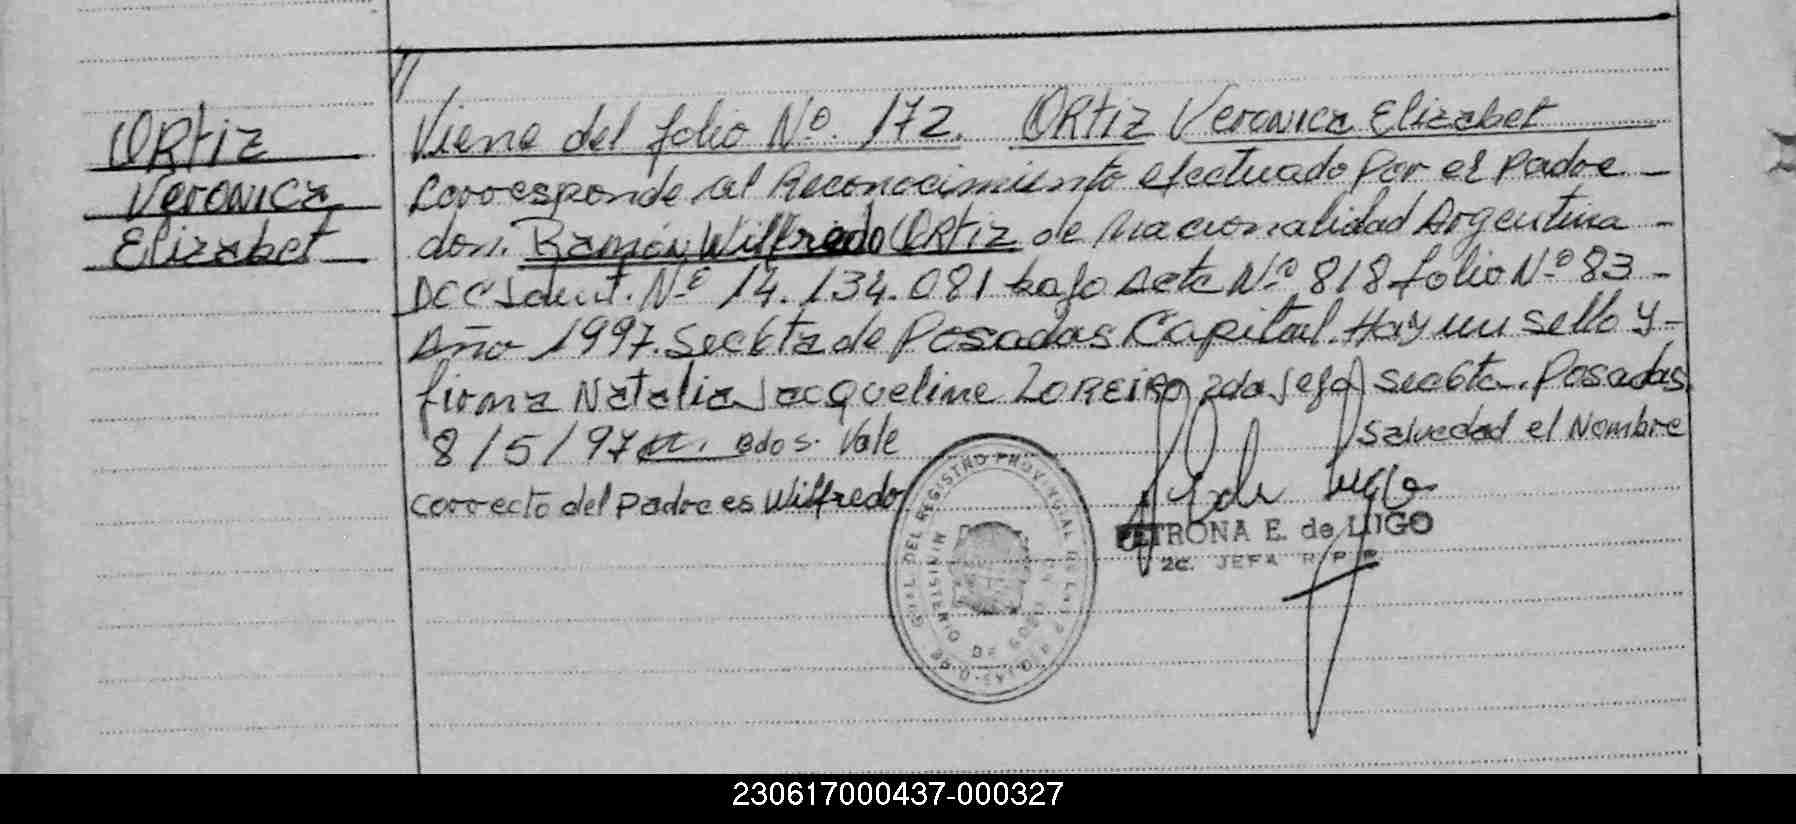 Ortiz
Veronica
Elizabet
Viene del folio Nº. 172. Ortiz Veronica Elizabet
Corresponde al Reconocimiento efectuado por el padre
don. Ramón Wilfredo Ortiz de nacionalidad Argentina
Doc Ident. Nº 14.134.081 bajo acta Nº 818 folio Nº 83
Año 1997. Sec 6ta de Posadas Capital. Hay un sello y
firma Natalia Jacqueline Loreiro 2da Jefa sec 6ta. Posadas
8/5/97 Bdos. Vale
Salvedad el Nombre
correcto del padre es Wilfredo
REGISTRO PROVINCIAL DE LAS PERSONAS
MINISTERIO DE
PETRONA E. de LUGO
2C. JEFA R.P.P.
230617000437-000327